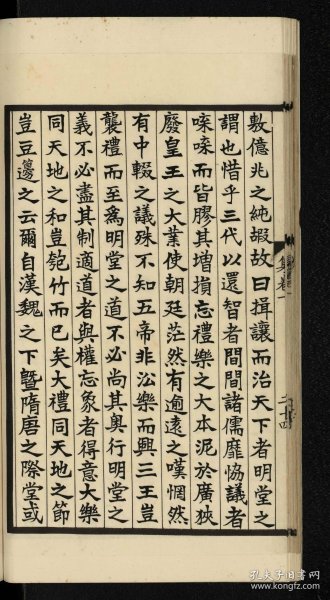 敷億兆之純嘏故曰揖讓而治天下者明堂之
謂也惜乎三代以還智者間間諸儒靡協議者
㗖㗖而皆膠其增損忘禮樂之大本泥於廣狹
廢皇王之大業使朝廷茫然有逾遠之嘆惘然
有中輟之議殊不知五帝非沿樂而興三王豈
襲禮而至為明堂之道不必尚其奥行明堂之
義不必盡其制適道者與權忘象者得意大樂
同天地之和豈匏竹而已矣大禮同天地之節
豈豆籩之云爾自漢魏之下曁隋唐之際堂或
集卷一
二十四
孔夫子旧书网
www.kongfz.com